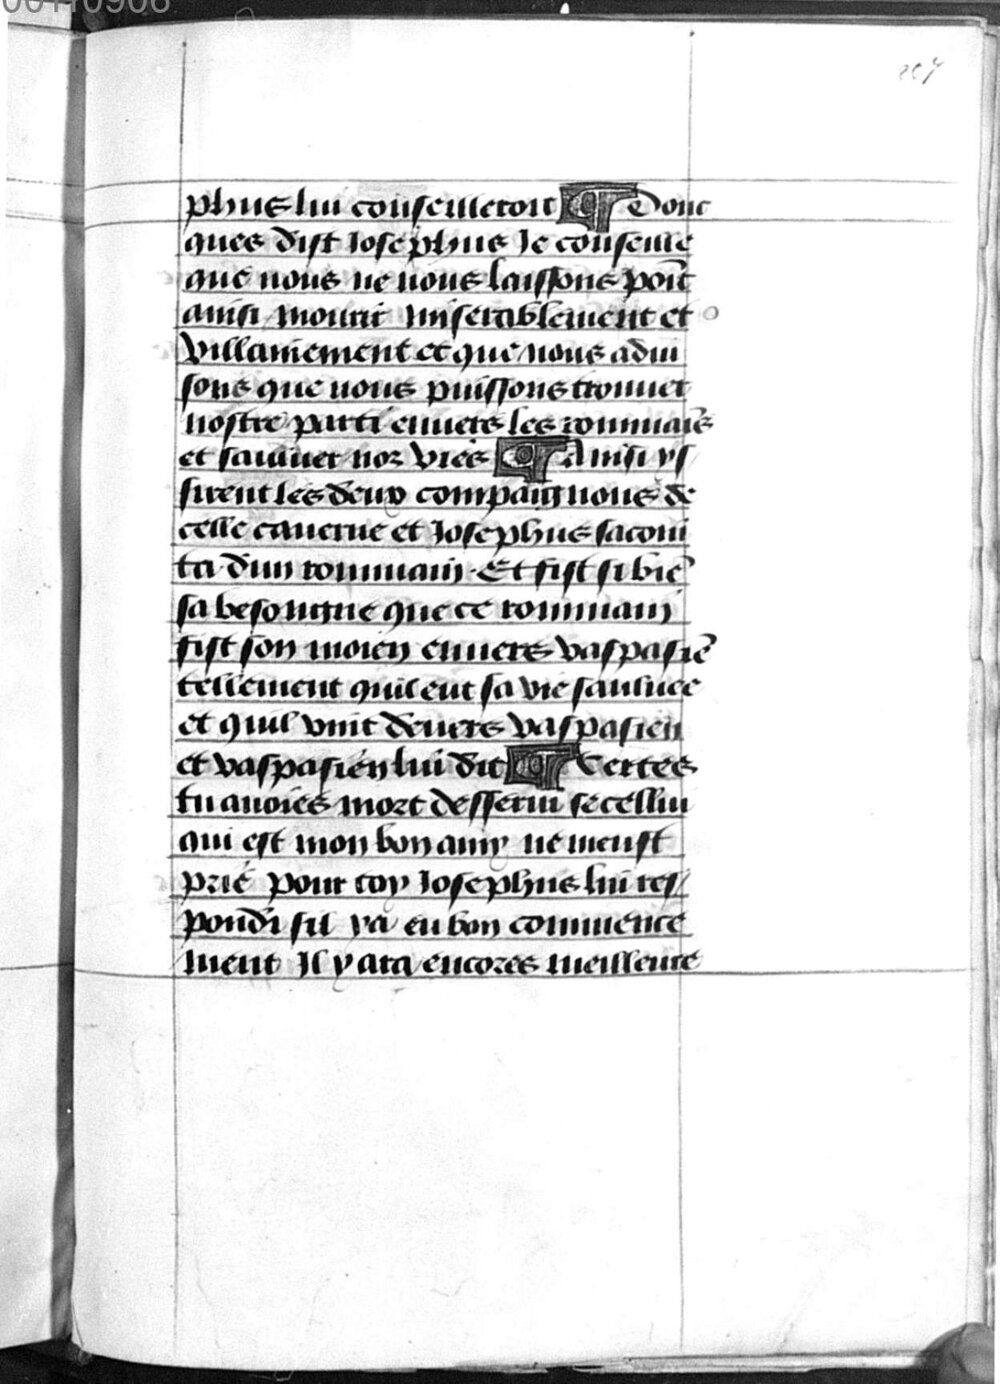 207
phus lui conseilleroit ¶ Donc
ques dist Josephus Je conseille
que nous ne nous laissons poīt
ainsi mourir miserablement et
villainement et que nous adui
sons que nous puissons trouuer
nostre parti enuers les rommaīs
et sauuer noz vies ¶ Ainsi ys
sirent les deux compaignons de
celle cauerne et Josephus sacoin
ta dun rommain. Et fist si biē
sa besongne que ce rommain
fist son moien enuers vaspasiē
tellement quil eut sa vie sauluee
et quil vint deuers vaspasien
et vaspasien lui dit ¶ Certes
tu auoies mort desserui se cellui
qui est mon bon amy ne meust
prie pour toy Josephus lui res
pondi sil ya eu bon commence
ment Il y ara encores meilleure